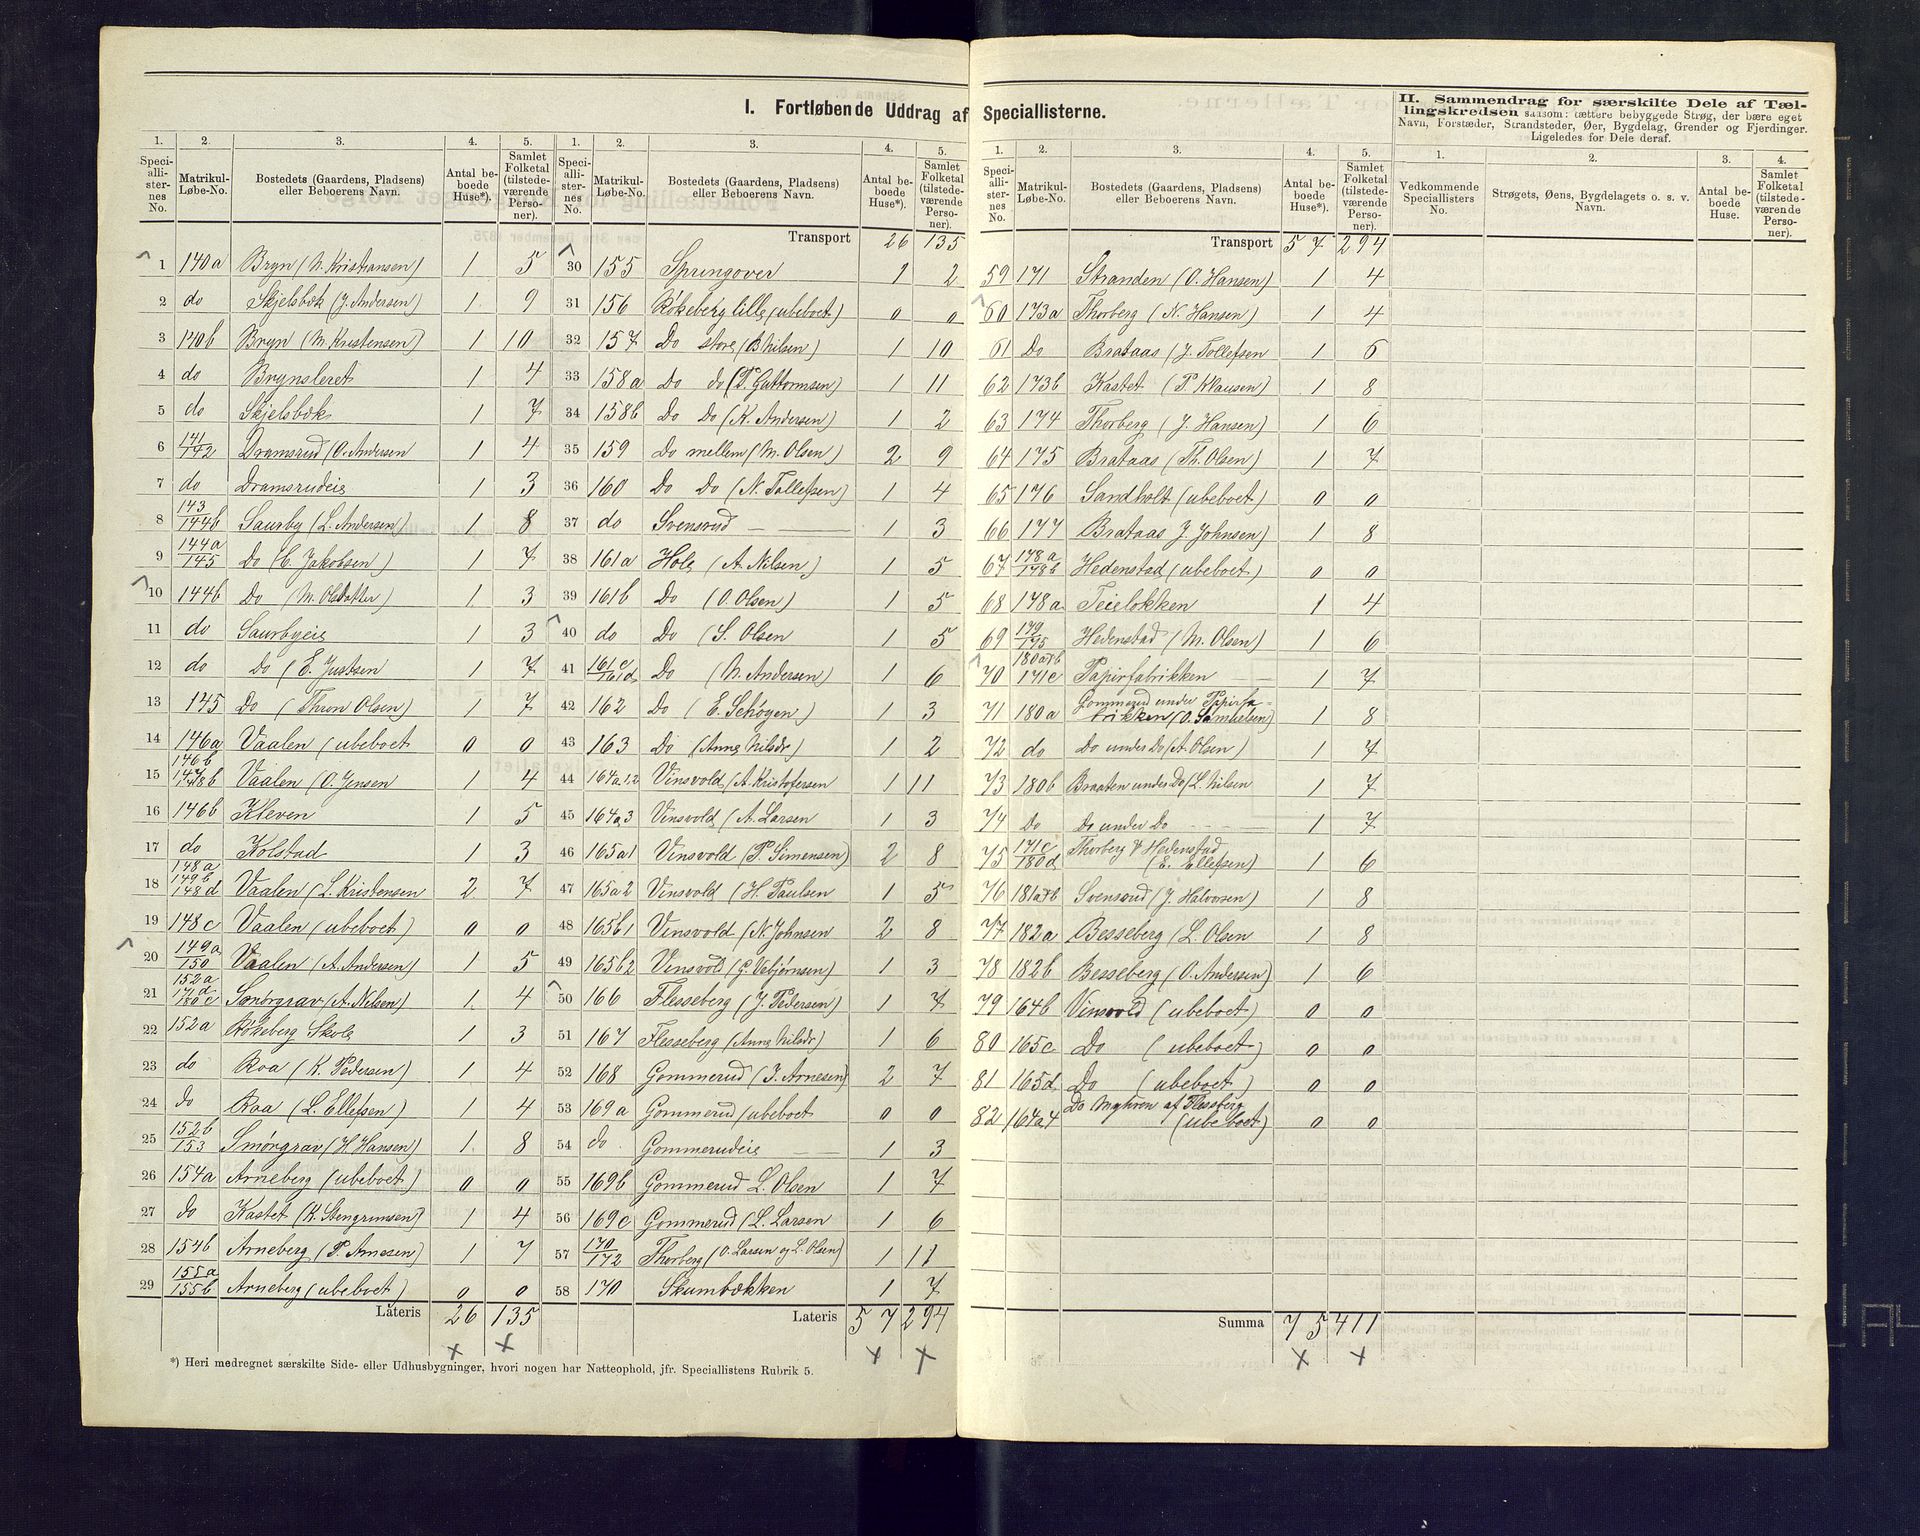 I. Fortløbende Uddrag af Speciallisterne.
1. 2. 3. 4. 5.
Speciallisternes No. Matrikul-Løbe-No. Bostedets (Gaardens, Pladsens) eller Beboerens Navn. Antal beboede Huse*). Samlet Folketal (tilstedeværende Personer).
1 140a Bryn (N. Kristiansen) 1 5
2 do Skjelsbæk (J. Andersen) 1 9
3 140b Bryn (M. Kristensen) 1 10
4 do Brynsleret 1 4
5 do Skjelsbæk 1 7
6 141/142 Dramsrud (O. Andersen 1 4
7 do Dramsrudeie 1 3
8 143/144b Saurby (L. Andersen) 1 8
9 144a/145 Do (E. Jakobsen) 1 7
10 144b Do (M. Olsdatter 1 3
11 do Saurbyeie 1 3
12 do Do (E. Justsen 1 7
13 145 Do (Thron Olsen) 1 7
14 146a Vaalen (ubeboet 0 0
15 146b 147/148b Vaalen (O. Jensen 1 4
16 146b Kleven 1 5
17 do Kolstad 1 3
18 148a 149b 148d Vaalen (L. Kristensen 2 7
19 148c Vaalen (ubeboet) 0 0
20 149a/150 Vaalen (A. Andersen) 1 5
21 152a 171d 180c Smørgrav (A. Nelsen) 1 4
22 152a Røkeberg Skole 1 3
23 do Roa (K. Pedersen) 1 4
24 do Roa (L. Ellefsen) 1 4
25 152b/153 Smørgrav (H. Hansen) 1 8
26 154a Arneberg (ubeboet) 0 0
27 do Kastet (K. Stengrimsen) 1 4
28 154b Arneberg (P. Arnesen) 1 7
29 155a/155b Arneberg (ubeboet) 0 0
Låteris 26 135
*) Heri medregnet særskilte Side- eller Udhusbygninger, hvori nogen har Natteophold, jfr. Speciallistens Rubrik 5.
1. 2. 3. 4. 5.
Speciallisternes No. Matrikul-Løbe-No. Bostedets (Gaardens, Pladsens) eller Beboerens Navn. Antal beboede Huse*). Samlet Folketal (tilstedeværende Personer).
Transport 26 135
30 155 Springover 1 2
31 156 Røkeberg lille (ubeboet) 0 0
32 157 Do store (B Nilsen) 1 10
33 158a Do do (T. Guttormsen) 1 11
34 158b Do Do (K. Andersen) 1 2
35 159 Do mellem (M. Olsen) 2 9
36 160 Do Do (N. Tollefsen) 1 4
37 do Svensrud 1 3
38 161a Hole (A. Nilsen) 1 5
39 161b Do (O. Olsen) 1 5
40 do Do (S. Olsen 1 5
41 161c/161d Do (N. Andersen) 1 6
42 162 Do (E. Schøyen) 1 3
43 163 Do (Anne Nilsdr) 1 2
44 164a1,2 Vinsvold (A. Kristofersen 1 11
45 164a3 Vinsvold (A. Larsen 1 3
46 165a1 Vinsvold (P. Simensen) 2 8
47 165a2 Vinsvold (H. Paulsen 1 5
48 165b1 Vinsvold (N. Johnsen 2 8
49 165b2 Vinsvold (G. Vebjørnsen) 1 3
50 166 Flesseberg (J. Pedersen) 1 7
51 167 Flesseberg (Anne Nilsdr) 1 6
52 168 Gommerud (J. Arnesen) 2 7
53 169a Gommerud (ubeboet 0 0
54 do. Gommerudeie 1 3
55 169b Gommerud L. Olsen 1 7
56 169c Gommerud (L. Larsen 1 6
57 170/172 Thorberg (O. Larsen og L. Olsen) 1 11
58 170 Skumbækken 1 7
Lateris 57 294
1. 2. 3. 4. 5.
Speciallisternes No. Matrikul-Løbe-No. Bostedets (Gaardens, Pladsens) eller Beboerens Navn. Antal beboede Huse*). Samlet Folketal (tilstedeværende Personer).
Transport 57 294
59 171 Stranden (O. Hansen) 1 4
60 173a Thorberg (N. Hansen) 1 4
61 Do Brataas (J. Tollefsen 1 6
62 173b Kastet (P Klausen) 1 8
63 174 Thorberg (J. Hansen) 1 6
64 175 Brataas (Th. Olsen) 1 7
65 176 Sandholt (ubeboet) 0 0
66 177 Brataas J Johnsen) 1 8
67 178a/178b Hedenstad (ubeboet) 0 0
68 178a Teieløkken 1 4
69 179/175 Hedenstad (M. Olsen) 1 6
70 180a+b 171c Papirfabrikken 1 7
71 180a Gommerud under Papirfabrikken (O. Samuelsen) 1 8
72 do Do under Do (A. Olsen) 1 7
73 180b Braaten under Do (L. Nilsen 1 7
74 Do Do under Do 1 7
75 171c/180d Thorberg & Hedenstad (E. Ellefsen) 1 6
76 181a+b Svensrud (J. Halvorsen) 1 8
77 182a Besseberg (L. Olsen 1 8
78 182b Besseberg (O. Andersen) 1 6
79 164b Vinsvold (ubeboet) 0 0
80 165c Do (ubeboet) 0 0
81 165d Do (ubeboet) 0 0
82 164a4 Do Myhren af Flesberg (ubeboet) 0 0
Summa 75 411
II. Sammendrag for særskilte Dele af Tællingskredsen saasom: tættere bebyggede Strøg, der bære eget Navn, Forstæder, Strandsteder, Øer, Bygdelag, Grender og Fjerdinger. Ligeledes for Dele deraf.
1. 2. 3. 4.
Vedkommende Speciallisters No. Strøgets, Øens, Bygdelagets o. s. v. Navn. Antal beboede Huse. Samlet Folketal (tilstedeværende Personer).